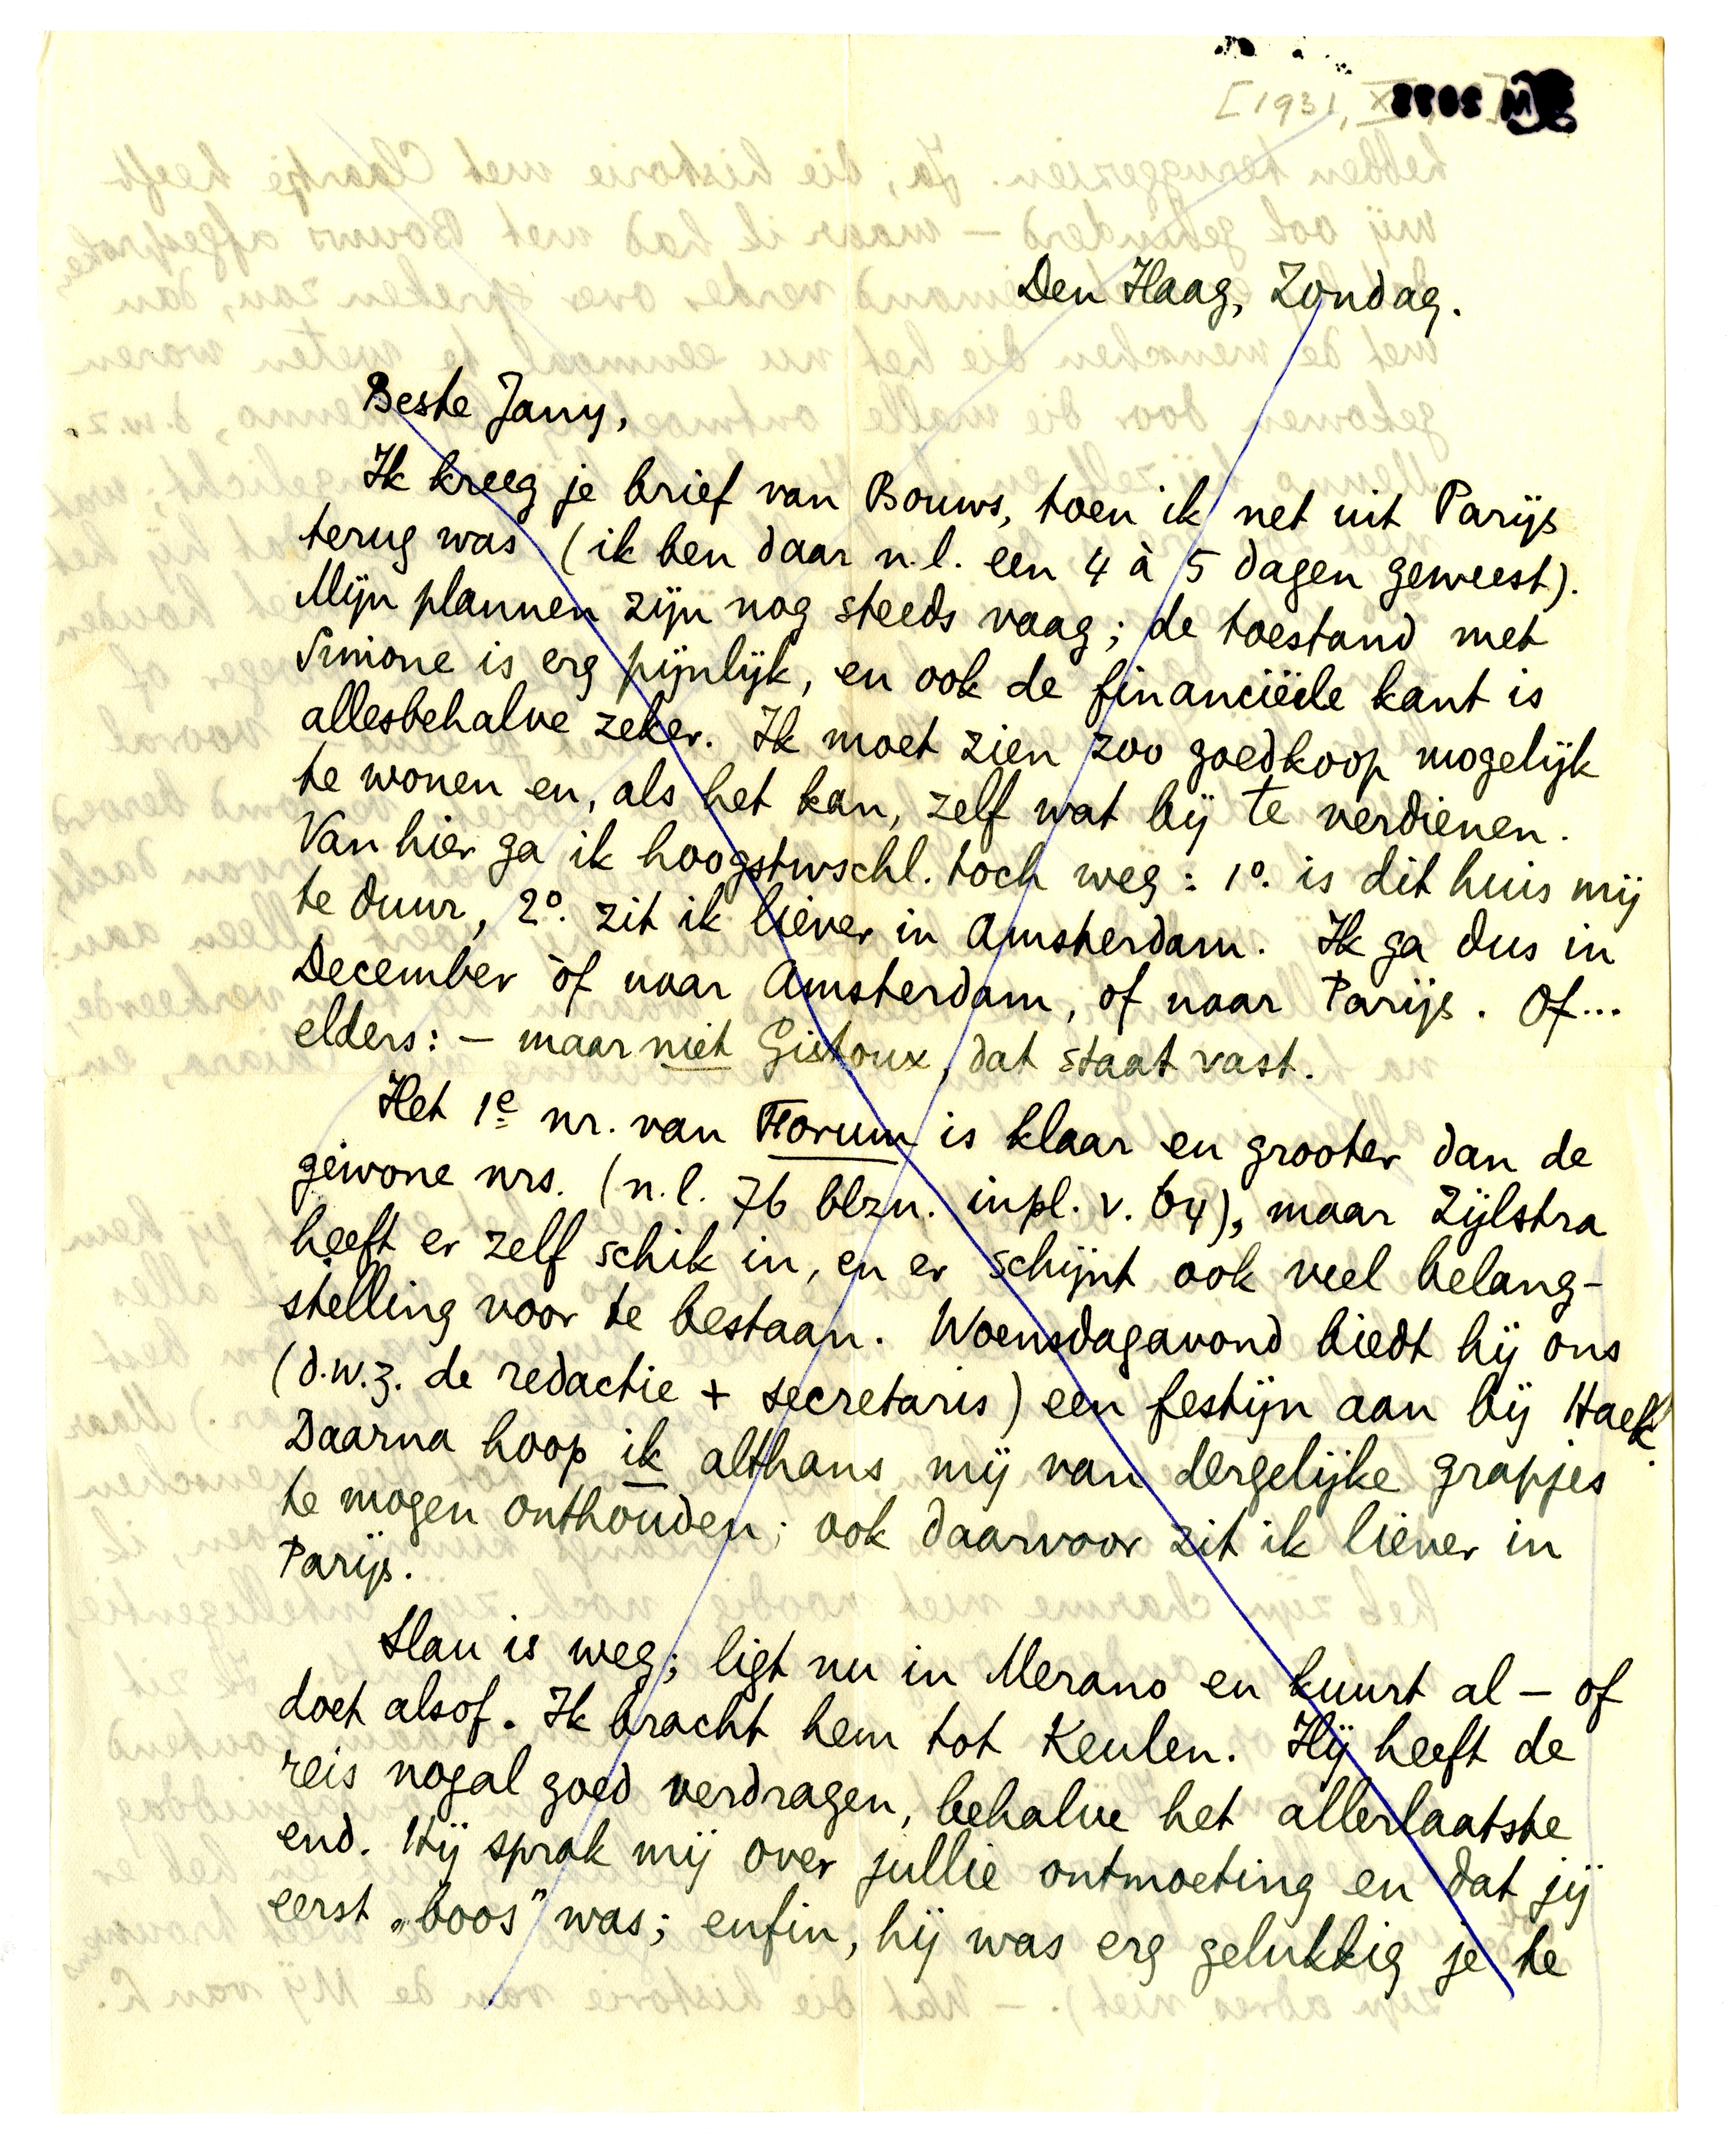 [1931, X
Den Haag, Zondag.
Beste Jany,
Ik kreeg je brief van Bouws, toen ik net uit Parijs
terug was (ik ben daar n.l. een 4 à 5 dagen geweest).
Mijn plannen zijn nog steeds vaag; de toestand met
Simone is erg pijnlijk, en ook de financiëele kant is
allesbehalve zeker. Ik moet zien zoo goedkoop mogelijk
te wonen en, als het kan, zelf wat bij te verdienen.
Van hier ga ik hoogstwschl. toch weg: 1º. is dit huis mij
te duur, 2º. zit ik liever in Amsterdam. Ik ga dus in
December òf naar Amsterdam, of naar Parijs. Of...
elders: – maar niet Gistoux, dat staat vast.
Het 1e nr. van Forum is klaar en grooter dan de
gewone nrs. (n.l. 76 blzn. inpl. v. 64), maar Zijlstra
heeft er zelf schik in, en er schijnt ook veel belang-
stelling voor te bestaan. Woensdagavond biedt hij ons
(d.w.z. de redactie + secretaris) een festijn aan bij Haek.
Daarna hoop ik althans mij van dergelijke grapjes
te mogen onthouden; ook daarvoor zit ik liever in
Parijs.
Slau is weg; ligt nu in Merano en kuurt al – of
doet alsof. Ik bracht hem tot Keulen. Hij heeft de
reis nogal goed verdragen, behalve het allerlaatste
end. Hij sprak mij over jullie ontmoeting en dat jij
eerst „boos" was; enfin, hij was erg gelukkig je te